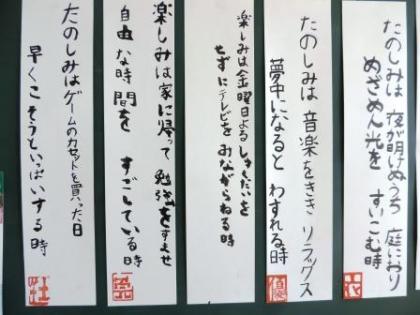 たのしみは 夜が明けぬうち 庭におり
めざめん光を すいこむ時
たのしみは 音楽をきき リラックス
夢中になると わすれる時
楽しみは金曜日よるしゅくだいを
せずにテレビを みながらねる時
楽しみは家に帰って 勉強をすませ
自由な時間を すごしている時
たのしみはゲームのカセットを買った日
早くこそうといっぱいする時